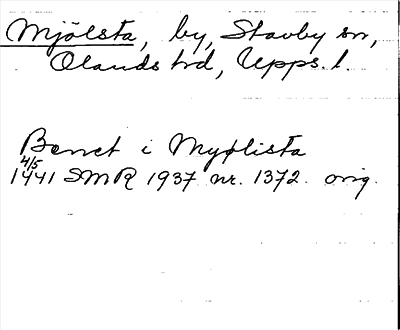 Mjölsta, by, Stavby sn,
Olands hd, Upps. l.
Benct i Myølista
4/5
1441 SMR 1937 nr. 1372. orig.